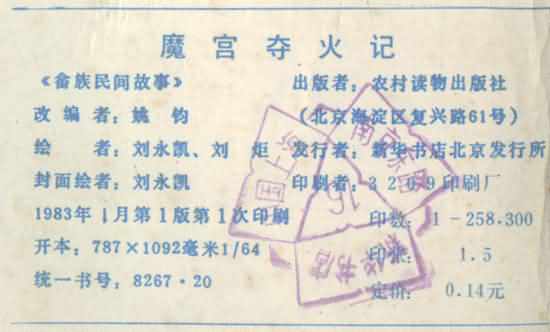 魔宫夺火记
《畲族民间故事》 出版者：农村读物出版社
改编者：姚 钧 （北京海淀区复兴路61号）
绘 者：刘永凯、刘 炬 发行者：新华书店北京发行所
封面绘者：刘永凯 印刷者：3209印刷厂
1983年1月第1版第1次印刷 印数：1－258.300
开本：787×1092毫米1/64 印张：1.5
统一书号：8267·20 定价：0.14元